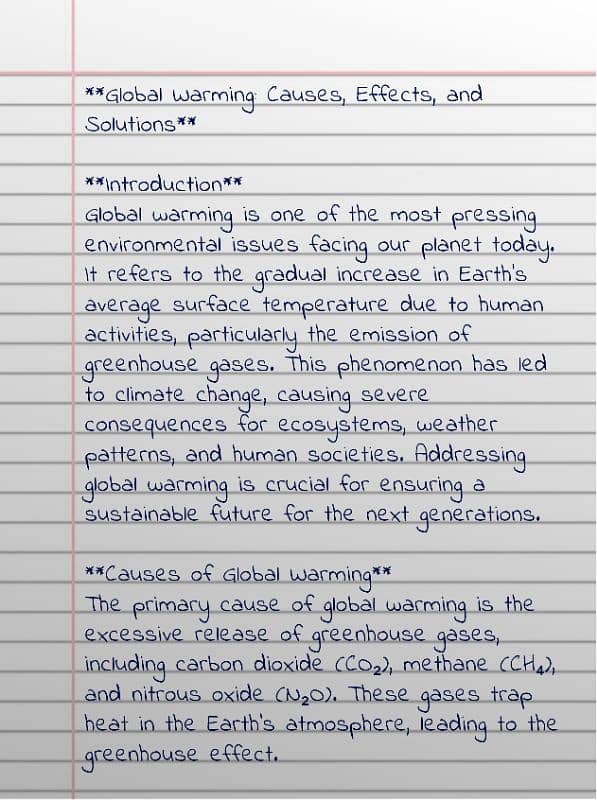 **Global Warming: Causes, Effects, and
Solutions**
**Introduction**
Global warming is one of the most pressing
environmental issues facing our planet today.
It refers to the gradual increase in Earth's
average surface temperature due to human
activities, particularly the emission of
greenhouse gases. This phenomenon has led
to climate change, causing severe
consequences for ecosystems, weather
patterns, and human societies. Addressing
global warming is crucial for ensuring a
sustainable future for the next generations.
**Causes of Global Warming**
The primary cause of global warming is the
excessive release of greenhouse gases,
including carbon dioxide (CO₂), methane (CH₄),
and nitrous oxide (N₂O). These gases trap
heat in the Earth's atmosphere, leading to the
greenhouse effect.